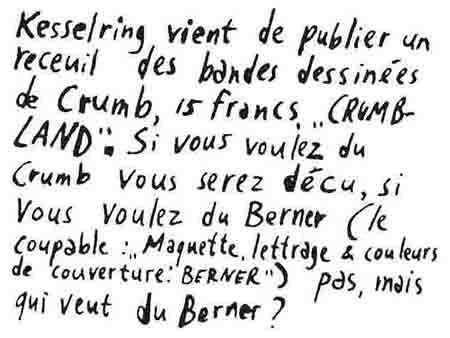 Kesselring vient de publier un
receuil des bandes dessinées
de Crumb, 15 francs, „CRUMB-
LAND". Si vous voulez du
Crumb vous serez déçu, si
vous voulez du Berner (le
coupable : „Maquette, lettrage & couleurs
de couverture: BERNER") pas, mais
qui veut du Berner ?